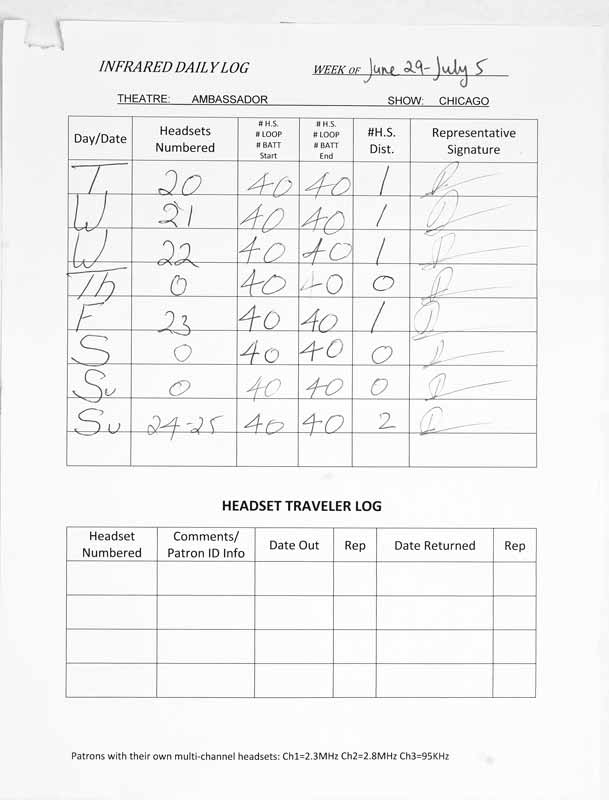 INFRARED DAILY LOG WEEK OF June 29-July 5
THEATRE: AMBASSADOR SHOW: CHICAGO
Day/Date Headsets Numbered # H.S. # LOOP # BATT Start # H.S. # LOOP # BATT End #H.S. Dist. Representative Signature
T 20 40 40 1
W 21 40 40 1
W 22 40 40 1
Th 0 40 40 0
F 23 40 40 1
S 0 40 40 0
Su 0 40 40 0
Su 24-25 40 40 2
HEADSET TRAVELER LOG
Headset Numbered Comments/ Patron ID Info Date Out Rep Date Returned Rep
Patrons with their own multi-channel headsets: Ch1=2.3MHz Ch2=2.8MHz Ch3=95KHz